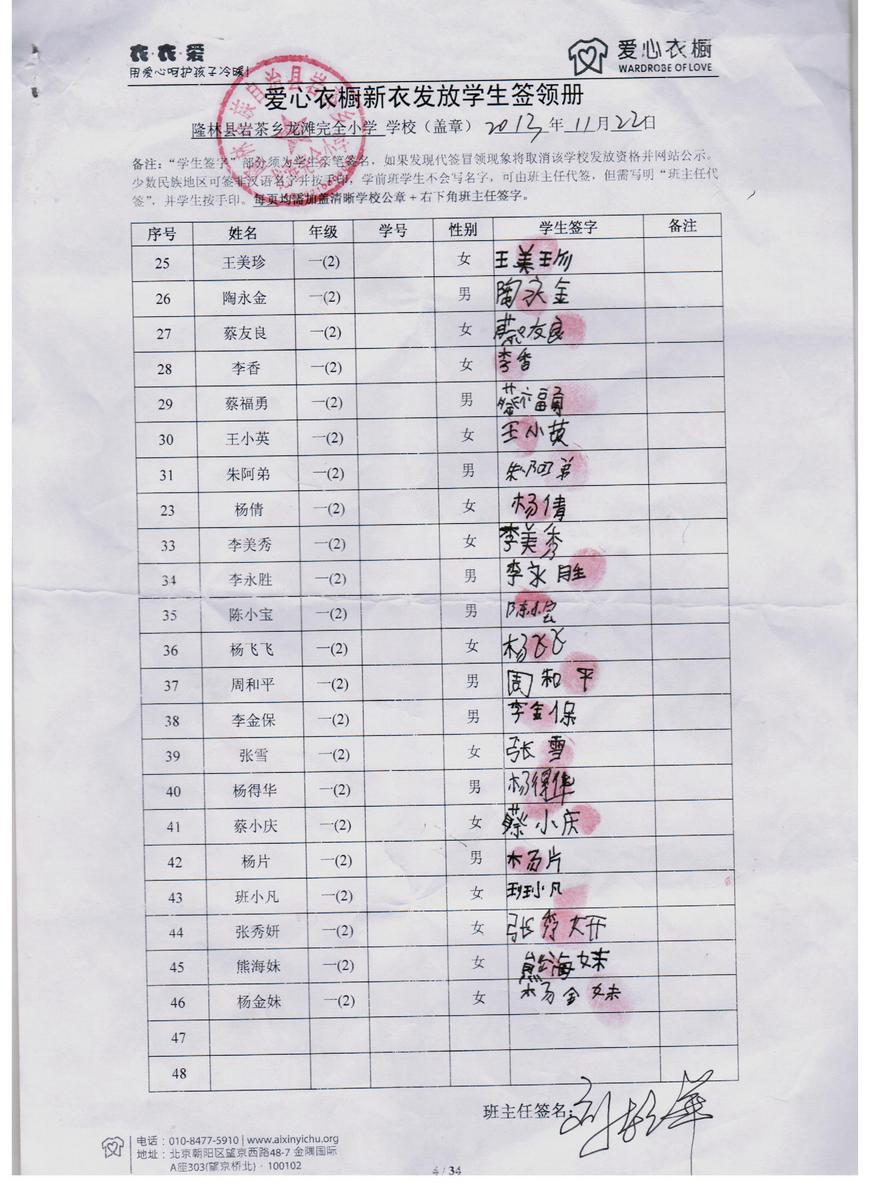 衣·衣·爱
用爱心呵护孩子冷暖!
爱心衣橱
WARDROBE OF LOVE
爱心衣橱新衣发放学生签领册
隆林县岩茶乡龙滩完全小学 学校（盖章） 2013年11月22日
备注：“学生签字”部分须为学生亲笔签名，如果发现代签冒领现象将取消该学校发放资格并网站公示。
少数民族地区可签非汉语名字并按手印，学前班学生不会写名字，可由班主任代签，但需写明“班主任代
签”，并学生按手印。每页均需加盖清晰学校公章+右下角班主任签字。
序号 姓名 年级 学号 性别 学生签字 备注
25 王美珍 一(2) 女 王美珍
26 陶永金 一(2) 男 陶永金
27 蔡友良 一(2) 女 蔡友良
28 李香 一(2) 女 李香
29 蔡福勇 一(2) 男 蔡福勇
30 王小英 一(2) 女 王小英
31 朱阿弟 一(2) 男 朱阿弟
23 杨倩 一(2) 女 杨倩
33 李美秀 一(2) 女 李美秀
34 李永胜 一(2) 男 李永胜
35 陈小宝 一(2) 男 陈小宝
36 杨飞飞 一(2) 女 杨飞飞
37 周和平 一(2) 男 周和平
38 李金保 一(2) 男 李金保
39 张雪 一(2) 女 张雪
40 杨得华 一(2) 男 杨得华
41 蔡小庆 一(2) 女 蔡小庆
42 杨片 一(2) 男 杨片
43 班小凡 一(2) 女 班小凡
44 张秀妍 一(2) 女 张秀妍
45 熊海妹 一(2) 女 熊海妹
46 杨金妹 一(2) 女 杨金妹
47
48
班主任签名：
电话：010-8477-5910 | www.aixinyichu.org
地址：北京朝阳区望京西路48-7 金隅国际
A座303(望京桥北)·100102
4 / 34